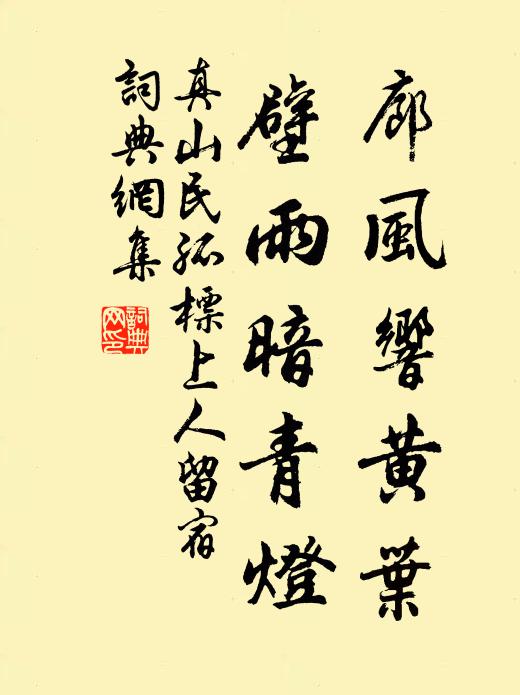 廊風響黃葉
壁雨暗青燈
真山民孤標上人留宿
詞典網集
詞典
网印